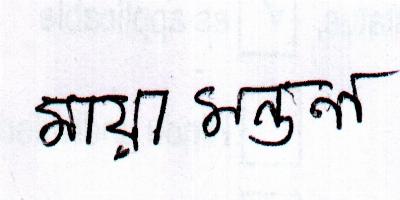 মায়া মন্ডল